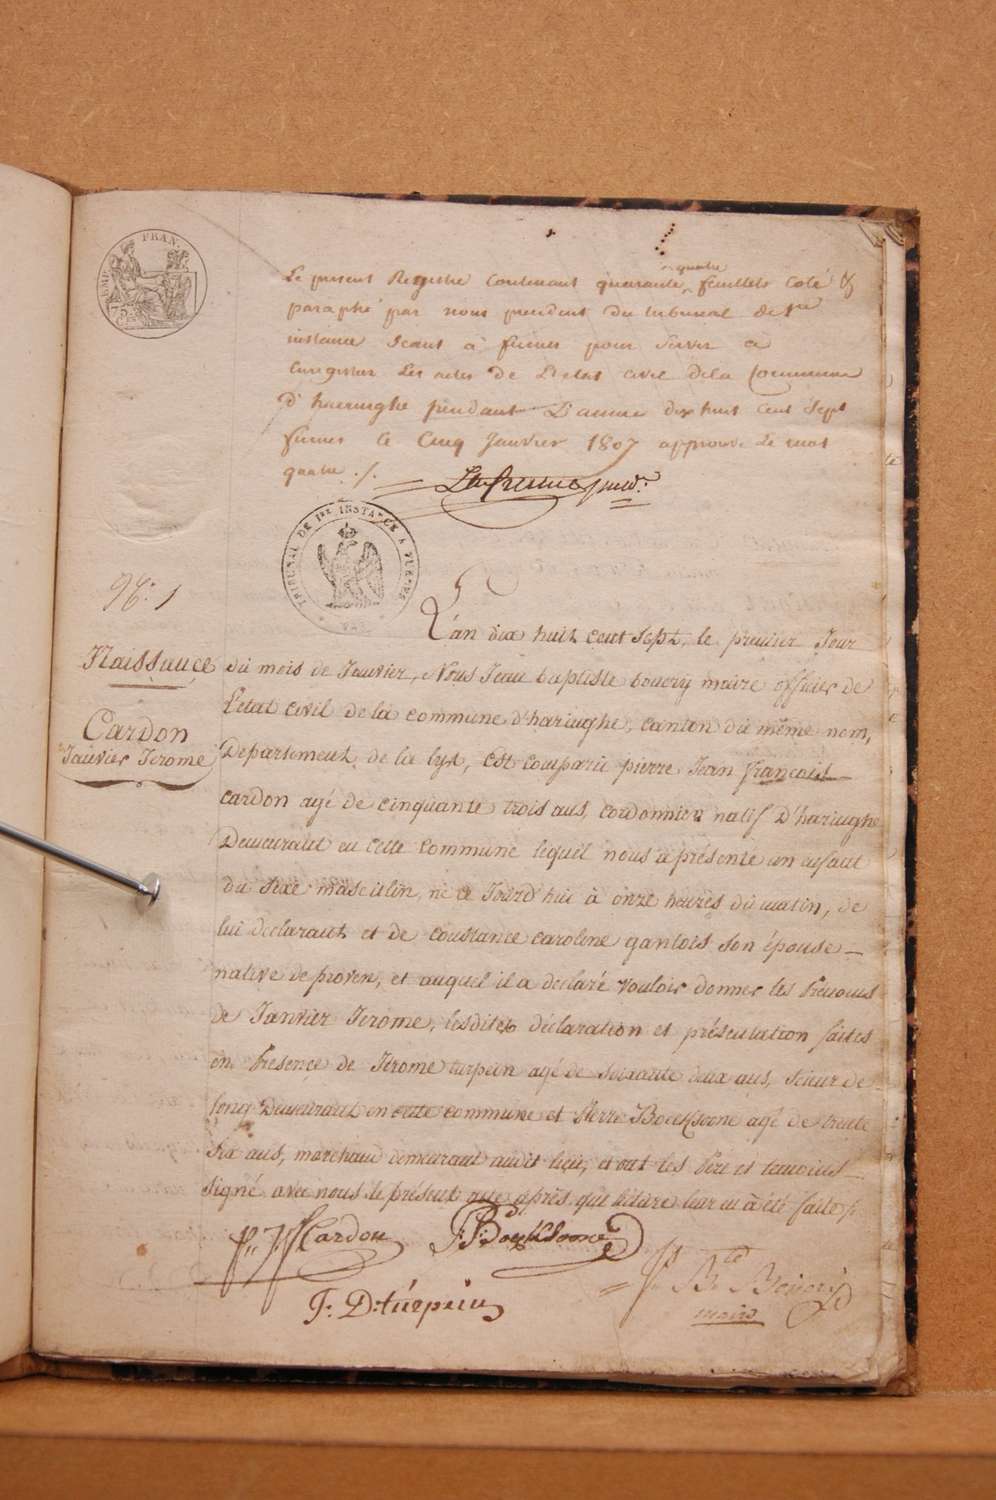 EMP. FRAN.
75 C.
quatre
Le present Registre Contenant quarante feuillets coté &
paraphé par nous president du tribunal de 1re
instance Seant à furnes pour servir a
Enregistrer les actes de L'etat civil dela Commune
d'haeringhe pendant L'année dix huit cent Sept
furnes le Cinq Janvier 1807 approuvé le mot
quatre ./.
TRIBUNAL DE 1RE INSTANCE A FURNES
No. 1
L'an dix huit cent Sept, le premier Jour
Naissance
du mois de Janvier, Nous Jean baptiste bouery maire officier de
L'etat civil de la commune d'haringhe, canton du même nom,
Cardon
Janvier Jerome
Departement de la lys, est comparu pierre Jean françois
cardon agé de cinquante trois ans, cordonnier natif d'haringhe
Demeurant en cette commune lequel nous a présenté un enfant
du Sexe masculin, né ce Jourd'hui à onze heures du matin, de
lui declarant et de constance caroline gantois son épouse
native de proven, et auquel il a declaré vouloir donner les Prenoms
de Janvier Jerome, lesdites déclaration et présentation faites
en Presence de Jerome turpein agé de soixante deux ans, scieur de
long Demeurant en cette commune et Pierre Boecksoone agé de trente
Six ans, marchand demeurant audit lieu, et ont les Père et temoins
signé avec nous le présent acte après qu'il
p: J: f Cardon
P: J: Boecksoone
J: D: turpein
J B te Bouery
maire